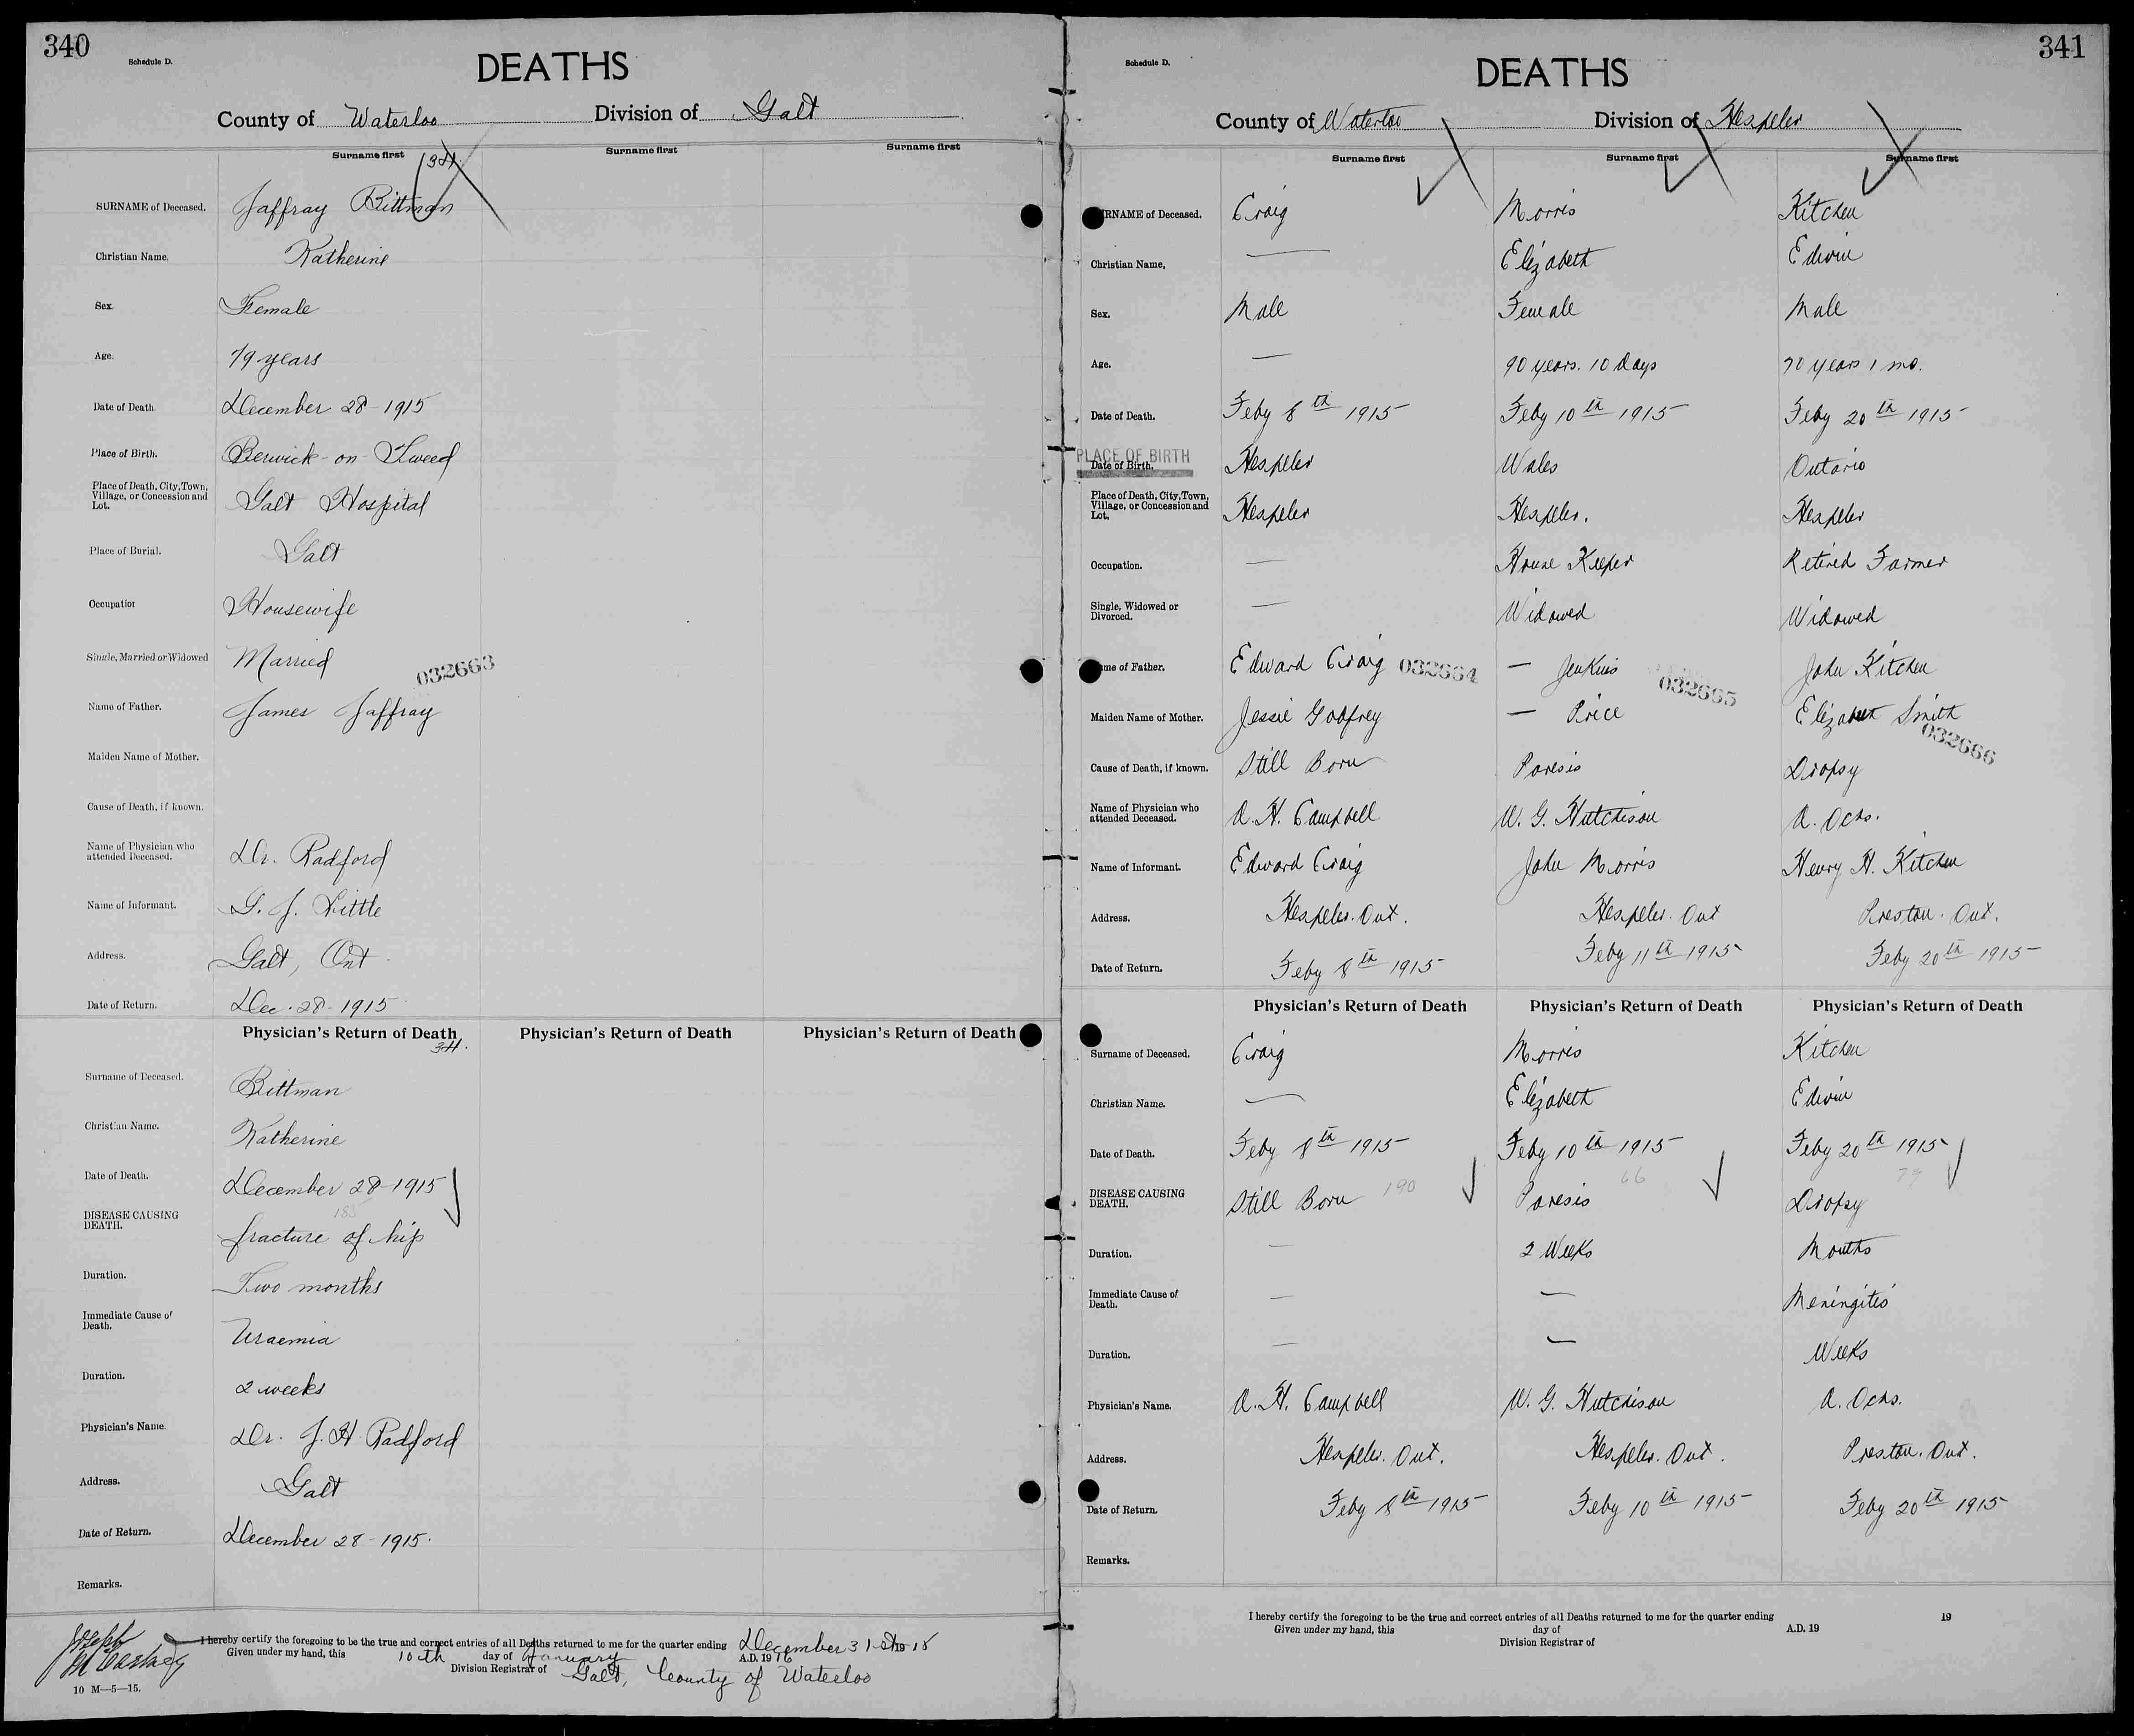 340
Schedule D.
DEATHS
County of Waterloo Division of Galt
Surname first Surname first Surname first
34.
SURNAME of Deceased. Jaffray Bittman
Christian Name. Katherine
Sex. Female
Age. 79 years
Date of Death December 28-1915
Place of Birth. Berwick-on-Tweed
Place of Death, City, Town, Village, or Concession and Lot. Galt Hospital
Place of Burial. Galt
Occupation Housewife
Single, Married or Widowed Married
032663
Name of Father. James Jaffray
Maiden Name of Mother.
Cause of Death, if known.
Name of Physician who attended Deceased. Dr. Radford
Name of Informant. G. J. Little
Address. Galt, Ont
Date of Return. Dec. 28-1915
Physician's Return of Death Physician's Return of Death Physician's Return of Death
34.
Surname of Deceased. Bittman
Christian Name. Katherine
Date of Death. December 28-1915
185
DISEASE CAUSING DEATH. fracture of hip
Duration. Two months
Immediate Cause of Death. Uraemia
Duration. 2 weeks
Physician's Name. Dr. J. H. Radford
Address. Galt
Date of Return. December 28-1915.
Remarks.
Joseph McCartney
I hereby certify the foregoing to be the true and correct entries of all Deaths returned to me for the quarter ending December 31st 1915
Given under my hand, this 10th day of January A.D. 1916
Division Registrar of Galt, County of Waterloo
10 M—5—15.
341
Schedule D.
DEATHS
County of Waterloo Division of Hespeler
Surname first Surname first Surname first
SURNAME of Deceased. Craig Morris Kitchen
Christian Name, — Elizabeth Edwin
Sex. Male Female Male
Age. — 90 years. 10 days 70 years 1 mo.
Date of Death. Feby 8th 1915 Feby 10th 1915 Feby 20th 1915
PLACE OF BIRTH
Date of Birth. Hespeler Wales Ontario
Place of Death, City, Town, Village, or Concession and Lot. Hespeler Hespeler. Hespeler
Occupation. — House Keeper Retired Farmer
Single, Widowed or Divorced. — Widowed Widowed
Name of Father. Edward Craig 032664 — Jenkins 032665 John Kitchen
Maiden Name of Mother. Jessie Godfrey — Price Elizabeth Smith 032666
Cause of Death, if known. Still Born Paresis Dropsy
Name of Physician who attended Deceased. A. H. Campbell W. G. Hutchison A. Ochs.
Name of Informant. Edward Craig John Morris Henry H. Kitchen
Address. Hespeler. Ont. Hespeler. Ont Preston. Ont.
Date of Return. Feby 8th 1915 Feby 11th 1915 Feby 20th 1915
Physician's Return of Death Physician's Return of Death Physician's Return of Death
Surname of Deceased. Craig Morris Kitchen
Christian Name. — Elizabeth Edwin
Date of Death. Feby 8th 1915 Feby 10th 1915 Feby 20th 1915
190 66 79
DISEASE CAUSING DEATH. Still Born Paresis Dropsy
Duration. — 2 Weeks Months
Immediate Cause of Death. — — Meningitis
Duration. — — Weeks
Physician's Name. A. H. Campbell W. G. Hutchison A. Ochs.
Address. Hespeler. Ont. Hespeler. Ont. Preston. Ont.
Date of Return. Feby 8th 1915 Feby 10th 1915 Feby 20th 1915
Remarks.
I hereby certify the foregoing to be the true and correct entries of all Deaths returned to me for the quarter ending 19
Given under my hand, this day of A.D. 19
Division Registrar of